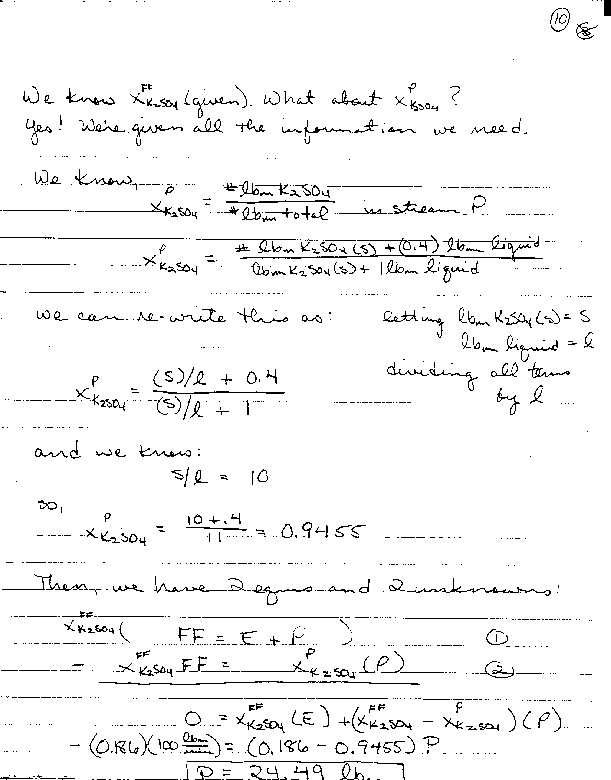 10
We know x^FF_K2SO4 (given). What about x^P_K2SO4 ?
Yes! We're given all the information we need.
We know,
x^P_K2SO4 = # lbm K2SO4 / # lbm total in stream P
x^P_K2SO4 = # lbm K2SO4 (s) + (0.4) lbm liquid / lbm K2SO4 (s) + 1 lbm liquid
we can re-write this as: letting lbm K2SO4 (s) = S
lbm liquid = l
dividing all terms
by l
x^P_K2SO4 = (S)/l + 0.4 / (S)/l + 1
and we know:
S/l = 10
so,
x^P_K2SO4 = 10 + .4 / 11 = 0.9455
Then, we have 2 eqns and 2 unknowns:
x^FF_K2SO4 ( FF = E + P ) ①
- x^FF_K2SO4 FF = x^P_K2SO4 (P) ②
0 = x^FF_K2SO4 (E) + (x^FF_K2SO4 - x^P_K2SO4)(P)
- (0.186)(100 lbm) = (0.186 - 0.9455) P
P = 24.49 lbm